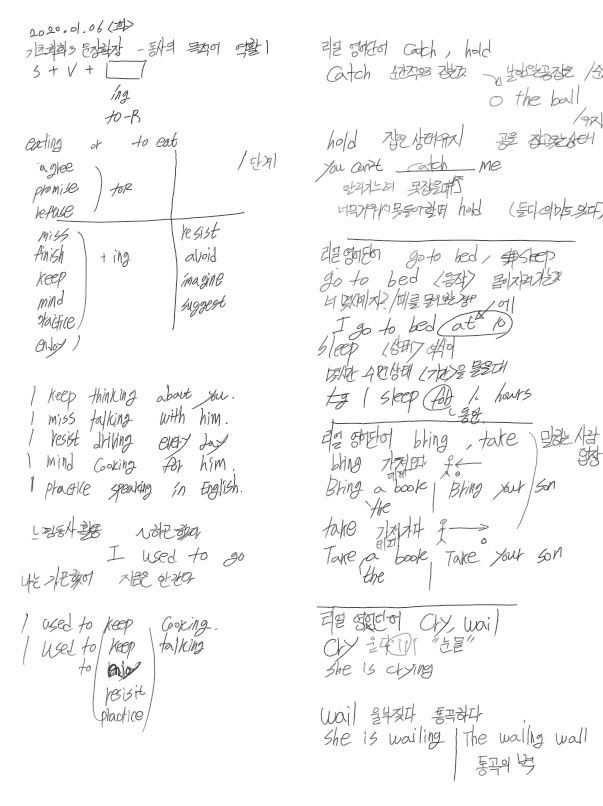 2020.01.06 <화>
기초회화3 문장확장 - 동사의 목적어 역할 1
S + V +
ing
to-R
eating or to eat
/ 단계
agree
promise
refuse
toR
miss
finish
keep
mind
practice
enjoy
+ ing
resist
avoid
imagine
suggest
I keep thinking about you.
I miss talking with him.
I resist driving every day
I mind cooking for him.
I practice speaking in English.
느낌동사 활용 ~하곤 했다
I used to go
나는 가곤 했어 지금은 안간다
I used to keep cooking.
I used to keep talking
to enjoy
resisit
practice
리얼 영어단어 catch, hold
Catch 순간적으로 잡는것 날아오는공을
the ball
hold 잡은 상태유지 공을 잡고있는상태
/유지
You can't catch me
못잡을때
너무가워서 못들어할때 hold (들다 의미도 있다)
리얼 영어단어 go to bed, sleep
go to bed <동작>
/에
I go to bed at 10
Sleep <상태>
몇시간 수면상태 <기간>을 물을때
I sleep for 10 hours
동안
리얼 영어단어 bring, take
말하는 사람 입장
bring 가져오다
데려
Bring a book | Bring your son
the
take 가져가다
데려
Take a book | Take your son
the
리얼 영어단어 Cry, wail
Cry 운다 "눈물"
she is crying
wail 울부짖다 통곡하다
she is wailing | The wailng wall
통곡의 벽